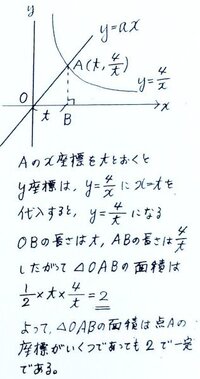 y
y=ax
A(t, 4/t)
y=4/x
O
t
B
x
Aのx座標をtとおくと
y座標は、y=4/xにx=tを
代入すると、y=4/tになる
OBの長さはt、ABの長さは4/t
したがって△OABの面積は
1/2×t×4/t=2
よって、△OABの面積は点Aの
座標がいくつであっても2で一定
である。